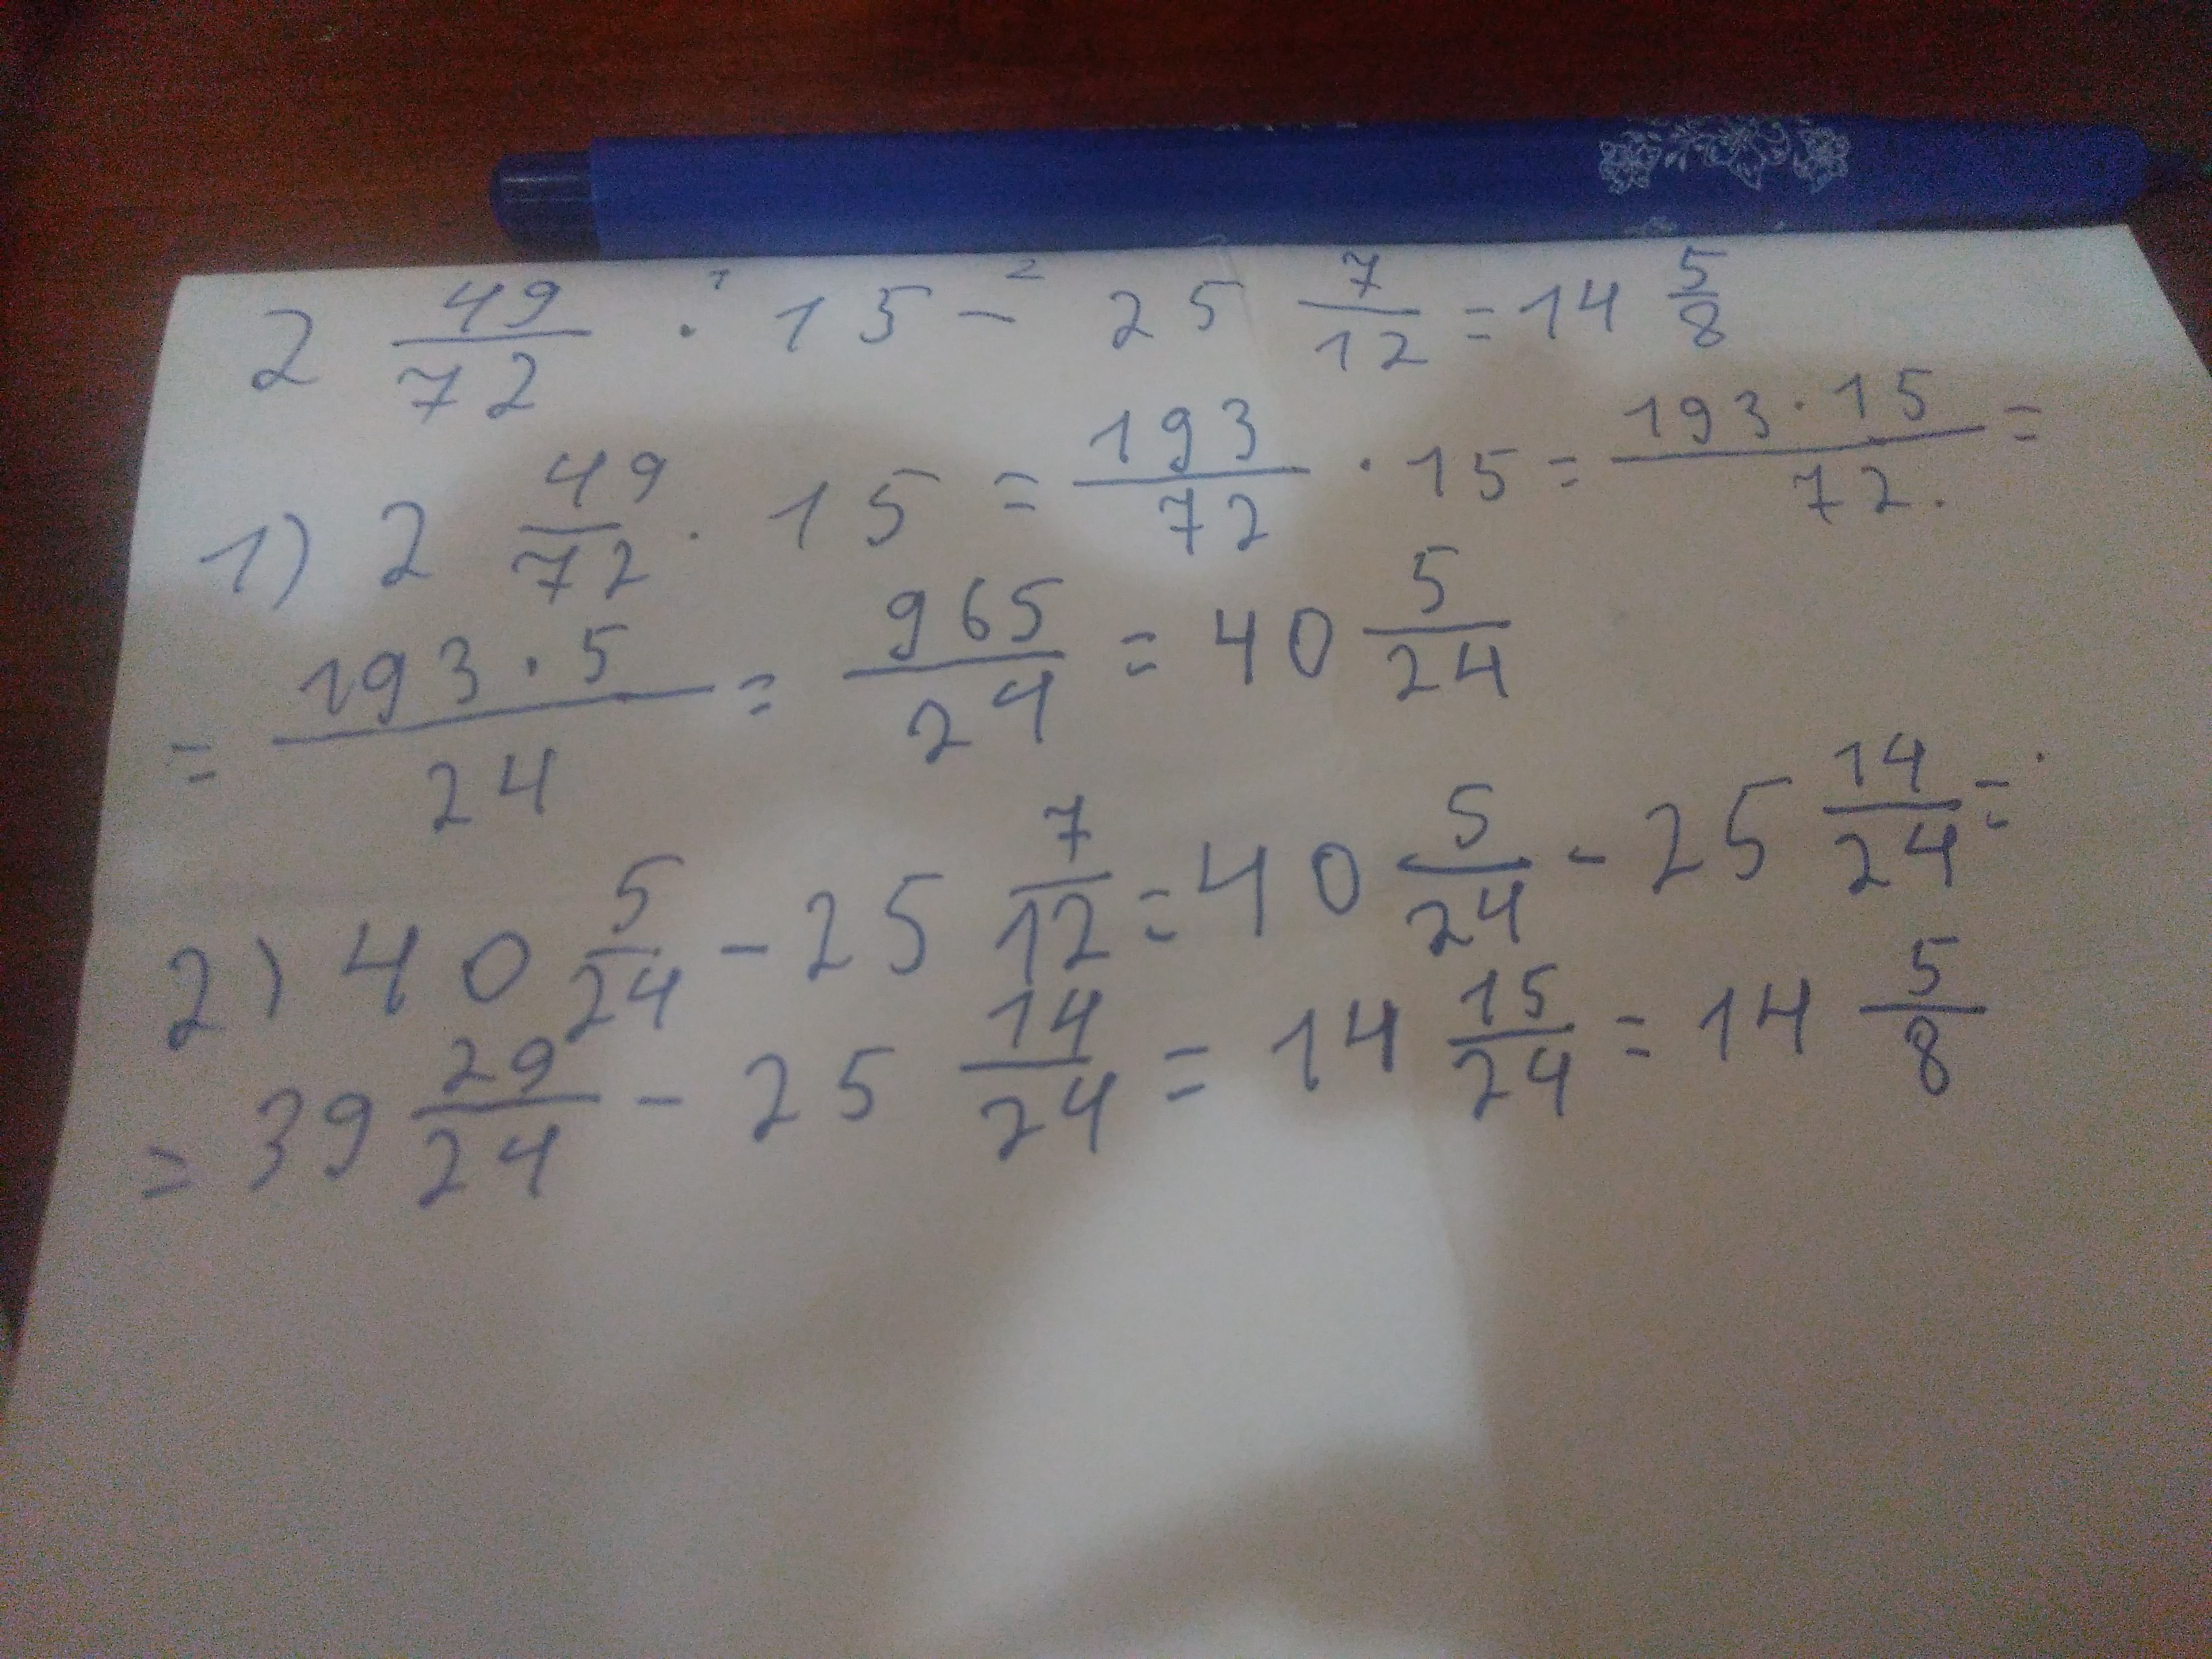 2 49/72 · 15 - 25 7/12 = 14 5/8
1) 2 49/72 · 15 = 193/72 · 15 = 193·15/72 =
= 193·5/24 = 965/24 = 40 5/24
2) 40 5/24 - 25 7/12 = 40 5/24 - 25 14/24 =
= 39 29/24 - 25 14/24 = 14 15/24 = 14 5/8